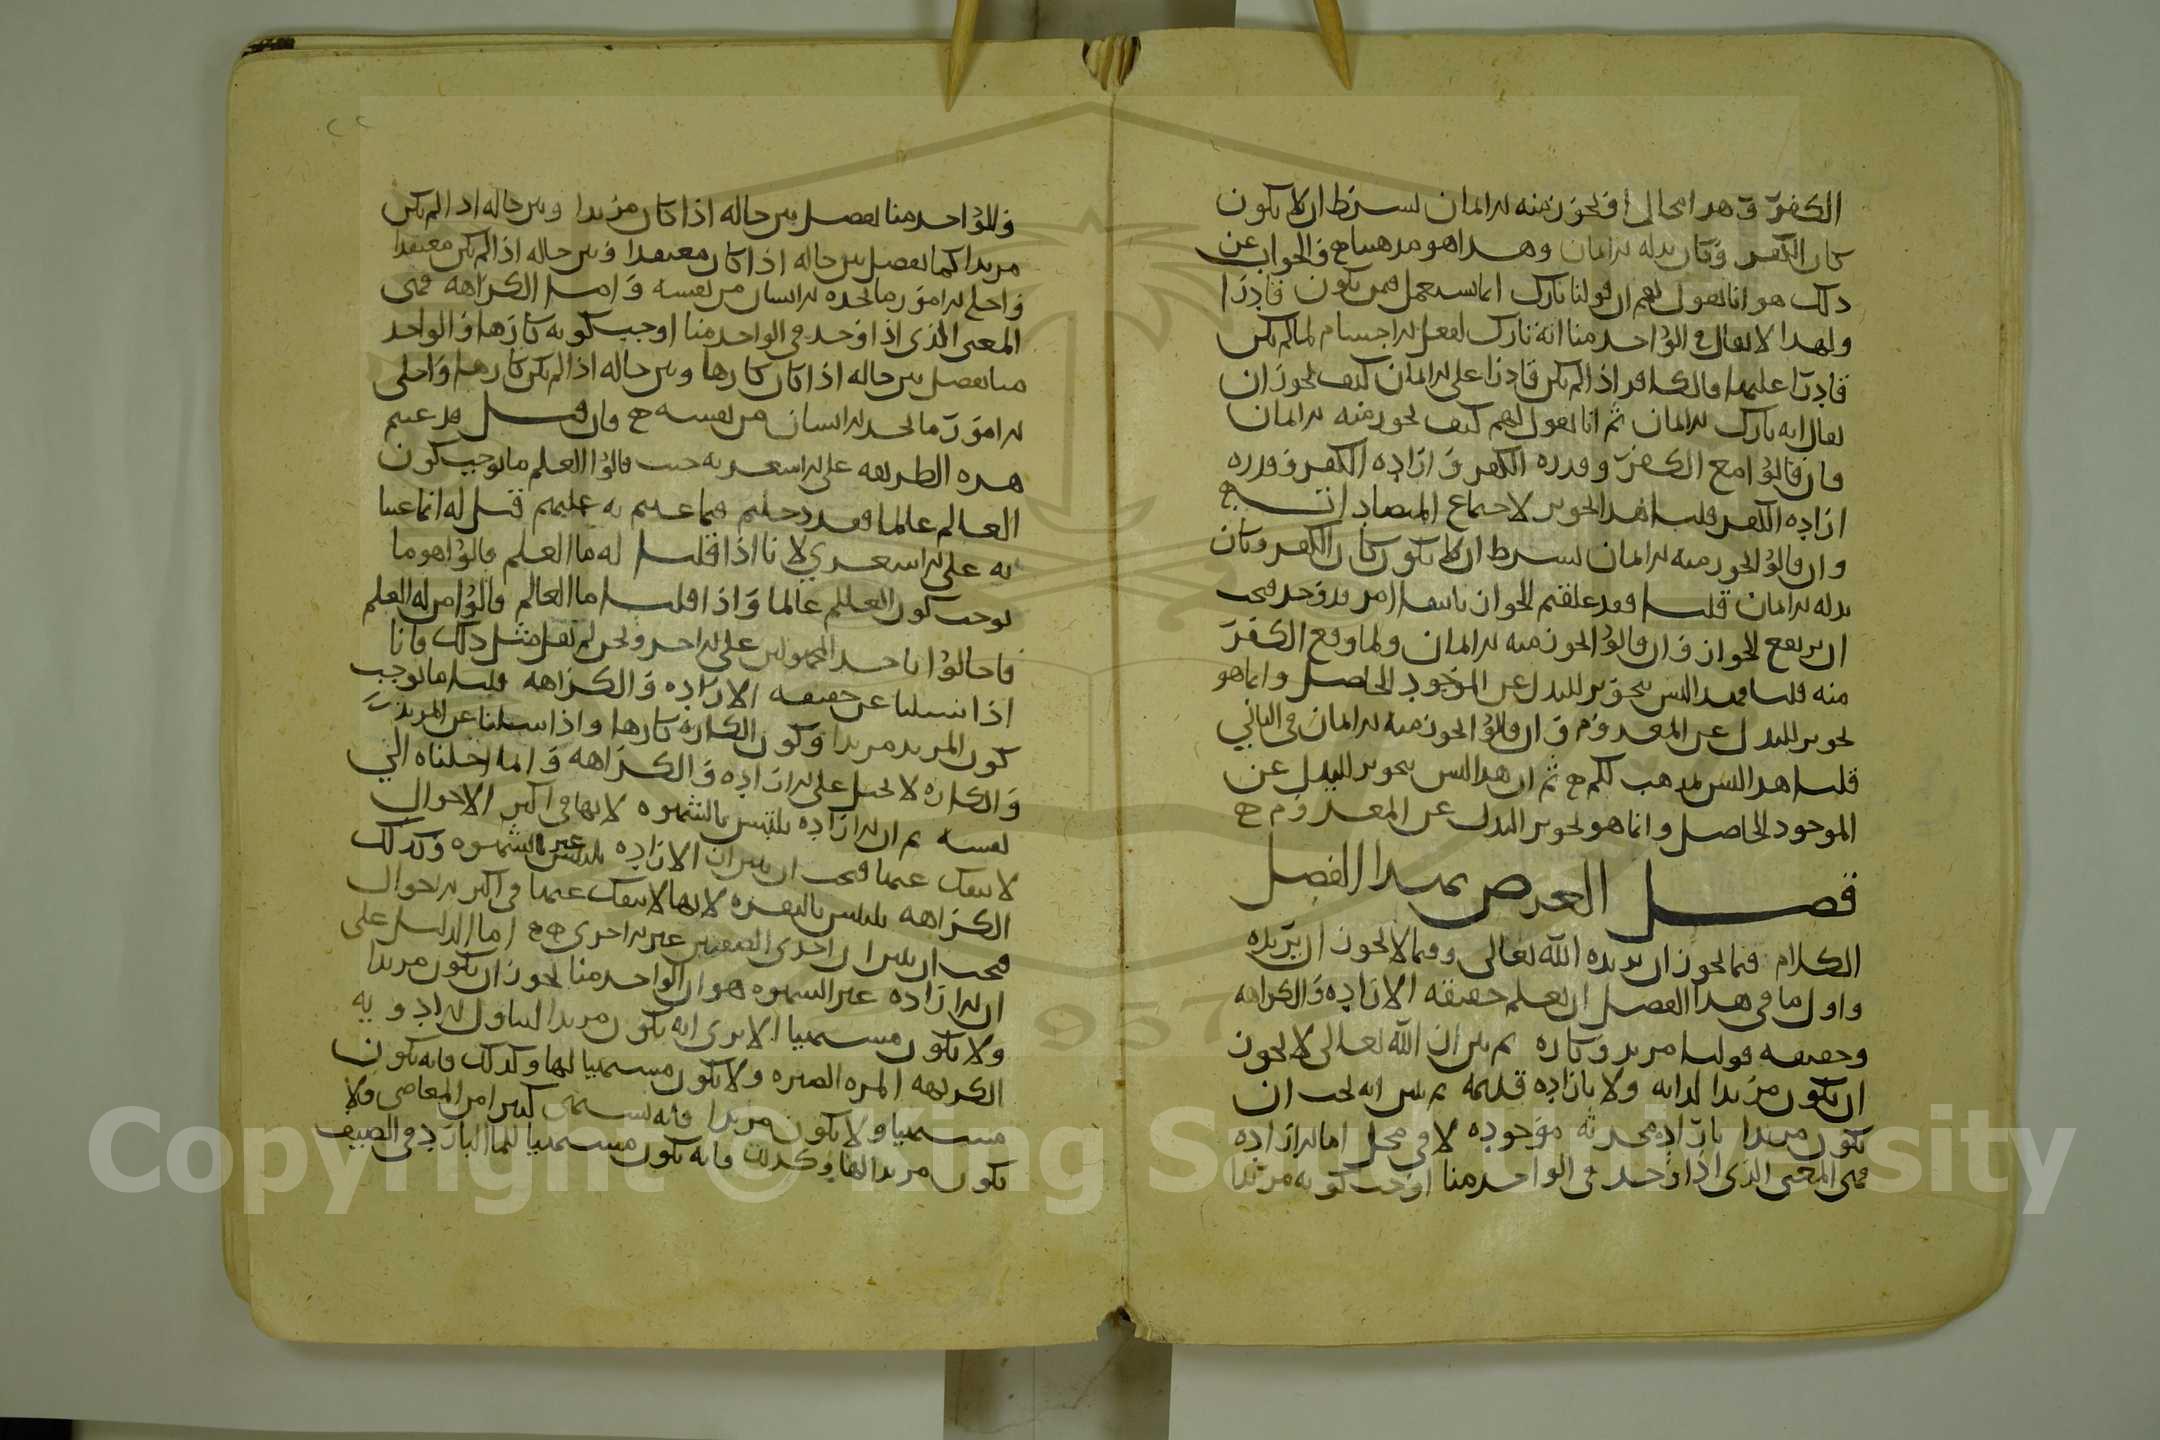 الكفر في هذا الحال او يجوز منه الايمان بشرط ان لا يكون
كان الكفر وكان بدله الايمان وهذا هو مذهبنا والجواب عن
ذلك هو انا نقول لهم ان قولنا تارك انما يستعمل فيمن يكون قادرا
ولهذا لا يقال في الواحد منا انه تارك لفعل الاجسام لما لم يكن
قادرا عليها فالكافر اذا لم يكن قادرا على الايمان كيف يجوز ان
يقال انه تارك الايمان ثم انا نقول لهم كيف يجوز منه الايمان
فان قالوا مع الكفر وقدره الكفر واراده الكفر وقدره
اراده الكفر قلنا هذا تجويز لاجتماع المتضادات
وان قالوا يجوز منه الايمان بشرط ان لا يكون كان الكفر وكان
بدله الايمان قلنا فقد علقتم الجواز بانتفاء امر قد وجد فيجب
ان يرتفع الجواز وان قالوا يجوز منه الايمان ولما وقع الكفر
منه قلنا فهذا ليس بتجويز للبدل عن الموجود الحاصل وانما هو
تجويز للبدل عن المعدوم وان قالوا يجوز منه الايمان في الثاني
قلنا هذا ليس مذهب لكم ثم ان هذا ليس بتجويز للبدل عن
الموجود الحاصل وانما هو تجويز البدل عن المعدوم
فصل الغرض بهذا الفصل
الكلام فيما يجوز ان يريده الله تعالى وفيما لا يجوز ان يريده
واول ما في هذا الفصل ان نعلم حقيقه الاراده والكراهه
وحقيقه قولنا مريد وكاره ثم نبين ان الله تعالى لا يجوز
ان يكون مريدا لذاته ولا باراده قديمه ثم نبين انه يجب ان
يكون مريدا باراده محدثه موجوده لا في محل اما الاراده
فهي المعنى الذي اذا وجد في الواحد منا اوجب كونه مريدا
والواحد منا يفصل بين حاله اذا كان مريدا وبين حاله اذا لم يكن
مريدا كما يفصل بين حاله اذا كان معتقدا وبين حاله اذا لم يكن معتقدا
واجلى الامور ما يجده الانسان من نفسه واما الكراهه فهي
المعنى الذي اذا وجد في الواحد منا اوجب كونه كارها والواحد
منا يفصل بين حاله اذا كان كارها وبين حاله اذا لم يكن كارها واجلى
الامور ما يجد الانسان من نفسه فان قيل قد عبتم
هذه الطريقه على الاشعريه حيث قالوا العلم ما يوجب كون
العالم عالما فقد دخلتم فيما عبتم به عليهم قيل له انما عبنا
به على الاشعري لانا اذا قلنا له ما العلم قالوا هو ما
يوجب كون العالم عالما واذا قلنا ما العالم قالوا من له العلم
فاحالوا باحد المجهولين على الاخر ونحن لم نفعل مثل ذلك فانا
اذا سئلنا عن حقيقه الاراده والكراهه قلنا ما يوجب
كون المريد مريدا وكون الكاره كارها واذا سئلنا عن المريد
والكاره لا نحيل على الاراده والكراهه وانما احلناه الى
نفسه ثم ان الاراده تلتبس بالشهوه لانها في اكثر الاحوال
لا تنفك عنها فيجب ان نبين ان الاراده غير الشهوه وكذلك
الكراهه تلتبس بالنفره لانها لا تنفك عنها في اكثر الاحوال
فيجب ان نبين ان احدى الصفتين غير الاخرى اما الدليل على
ان الاراده غير الشهوه هو ان الواحد منا يجوز ان يكون مريدا
ولا يكون مشتهيا الا يرى انه يكون مريدا لتناول الادويه
الكريهه المره ولا يكون مشتهيا لها وكذلك فانه يكون
مشتهيا ولا يكون مريدا فانه يشتهي كثيرا من المعاصي ولا
يكون مريدا لها وكذلك فانه يكون مشتهيا للماء البارد في الصيف